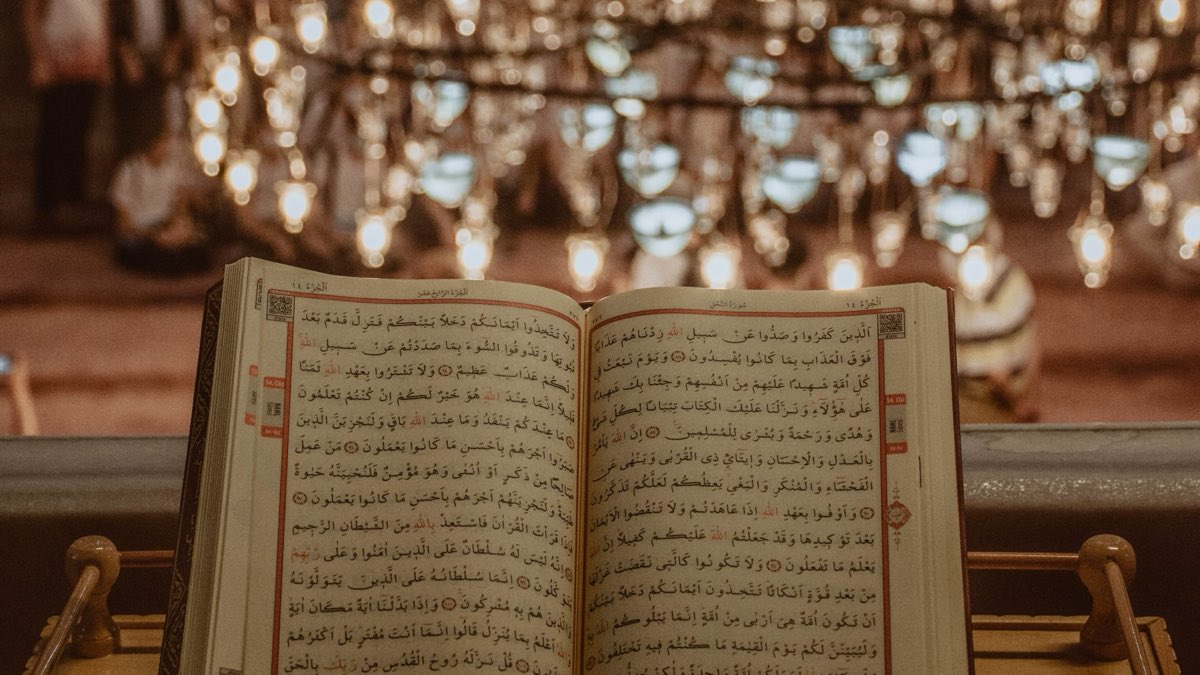 سُورَةُ النَّحْلِ
اَلْجُزْءُ ١٤
اَلَّذِينَ كَفَرُوا وَصَدُّوا عَنْ سَبِيلِ اللّٰهِ زِدْنَاهُمْ عَذَابًا
فَوْقَ الْعَذَابِ بِمَا كَانُوا يُفْسِدُونَ وَيَوْمَ نَبْعَثُ فِي
كُلِّ اُمَّةٍ شَهِيدًا عَلَيْهِمْ مِنْ اَنْفُسِهِمْ وَجِئْنَا بِكَ شَهِيدًا
عَلٰى هٰٓؤُلَٓاءِ وَنَزَّلْنَا عَلَيْكَ الْكِتَابَ تِبْيَانًا لِكُلِّ شَيْءٍ
وَهُدًى وَرَحْمَةً وَبُشْرٰى لِلْمُسْلِمِينَ اِنَّ اللّٰهَ يَأْمُرُ
بِالْعَدْلِ وَالْاِحْسَانِ وَاِيتَٓائِ ذِي الْقُرْبٰى وَيَنْهٰى عَنِ
الْفَحْشَٓاءِ وَالْمُنْكَرِ وَالْبَغْيِ يَعِظُكُمْ لَعَلَّكُمْ تَذَكَّرُونَ
وَاَوْفُوا بِعَهْدِ اللّٰهِ اِذَا عَاهَدْتُمْ وَلَا تَنْقُضُوا الْاَيْمَانَ
بَعْدَ تَوْكِيدِهَا وَقَدْ جَعَلْتُمُ اللّٰهَ عَلَيْكُمْ كَفِيلًا اِنَّ اللّٰهَ
يَعْلَمُ مَا تَفْعَلُونَ وَلَا تَكُونُوا كَالَّتِي نَقَضَتْ غَزْلَهَا
مِنْ بَعْدِ قُوَّةٍ اَنْكَاثًا تَتَّخِذُونَ اَيْمَانَكُمْ دَخَلًا بَيْنَكُمْ
اَنْ تَكُونَ اُمَّةٌ هِيَ اَرْبٰى مِنْ اُمَّةٍ اِنَّمَا يَبْلُوكُمُ اللّٰهُ بِهِ
وَلَيُبَيِّنَنَّ لَكُمْ يَوْمَ الْقِيٰمَةِ مَا كُنْتُمْ فِيهِ تَخْتَلِفُونَ
اَلْجُزْءُ ١٤
اَلْجُزْءُ الرَّابِعَ عَشَرَ
وَلَا تَتَّخِذُوا اَيْمَانَكُمْ دَخَلًا بَيْنَكُمْ فَتَزِلَّ قَدَمٌ بَعْدَ
ثُبُوتِهَا وَتَذُوقُوا السُّوءَ بِمَا صَدَدْتُمْ عَنْ سَبِيلِ اللّٰهِ
وَلَكُمْ عَذَابٌ عَظِيمٌ وَلَا تَشْتَرُوا بِعَهْدِ اللّٰهِ ثَمَنًا
قَلِيلًا اِنَّمَا عِنْدَ اللّٰهِ هُوَ خَيْرٌ لَكُمْ اِنْ كُنْتُمْ تَعْلَمُونَ
مَا عِنْدَكُمْ يَنْفَدُ وَمَا عِنْدَ اللّٰهِ بَاقٍ وَلَنَجْزِيَنَّ الَّذِينَ
صَبَرُوا اَجْرَهُمْ بِاَحْسَنِ مَا كَانُوا يَعْمَلُونَ مَنْ عَمِلَ
صَالِحًا مِنْ ذَكَرٍ اَوْ اُنْثٰى وَهُوَ مُؤْمِنٌ فَلَنُحْيِيَنَّهُ حَيٰوةً
طَيِّبَةً وَلَنَجْزِيَنَّهُمْ اَجْرَهُمْ بِاَحْسَنِ مَا كَانُوا يَعْمَلُونَ
فَاِذَا قَرَأْتَ الْقُرْاٰنَ فَاسْتَعِذْ بِاللّٰهِ مِنَ الشَّيْطَانِ الرَّجِيمِ
اِنَّهُ لَيْسَ لَهُ سُلْطَانٌ عَلَى الَّذِينَ اٰمَنُوا وَعَلٰى رَبِّهِمْ
يَتَوَكَّلُونَ اِنَّمَا سُلْطَانُهُ عَلَى الَّذِينَ يَتَوَلَّوْنَهُ
وَالَّذِينَ هُمْ بِهِ مُشْرِكُونَ وَاِذَا بَدَّلْنَٓا اٰيَةً مَكَانَ اٰيَةٍ
وَاللّٰهُ اَعْلَمُ بِمَا يُنَزِّلُ قَالُٓوا اِنَّمَٓا اَنْتَ مُفْتَرٍ بَلْ اَكْثَرُهُمْ
لَا يَعْلَمُونَ قُلْ نَزَّلَهُ رُوحُ الْقُدُسِ مِنْ رَبِّكَ بِالْحَقِّ